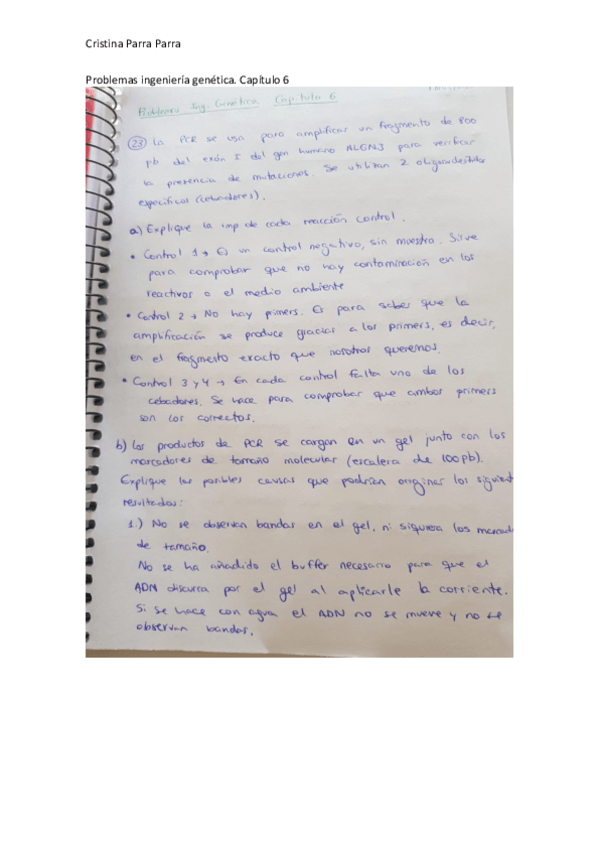 Cristina Parra Parra
Problemas ingeniería genética. Capítulo 6
Problemas Ing. Genética Capítulo 6
23) La PCR se usa para amplificar un fragmento de 800
pb del exón I del gen humano ALGN3 para verificar
la presencia de mutaciones. Se utilizan 2 oligonucleótidos
específicos (cebadores).
a) Explique la imp de cada reacción control.
• Control 1 → Es un control negativo, sin muestra. Sirve
para comprobar que no hay contaminación en los
reactivos o el medio ambiente
• Control 2 → No hay primers. Es para saber que la
amplificación se produce gracias a los primers, es decir,
en el fragmento exacto que nosotros queremos.
• Control 3 y 4 → En cada control falta uno de los
cebadores. Se hace para comprobar que ambos primers
son los correctos.
b) Los productos de PCR se cargan en un gel junto con los
marcadores de tamaño molecular (escalera de 100pb).
Explique las posibles causas que podrían originar los siguient
resultados:
1.) No se observan bandas en el gel, ni siquiera los marcad
de tamaño.
No se ha añadido el buffer necesario para que el
ADN discurra por el gel al aplicarle la corriente.
Si se hace con agua el ADN no se mueve y no se
observan bandas.